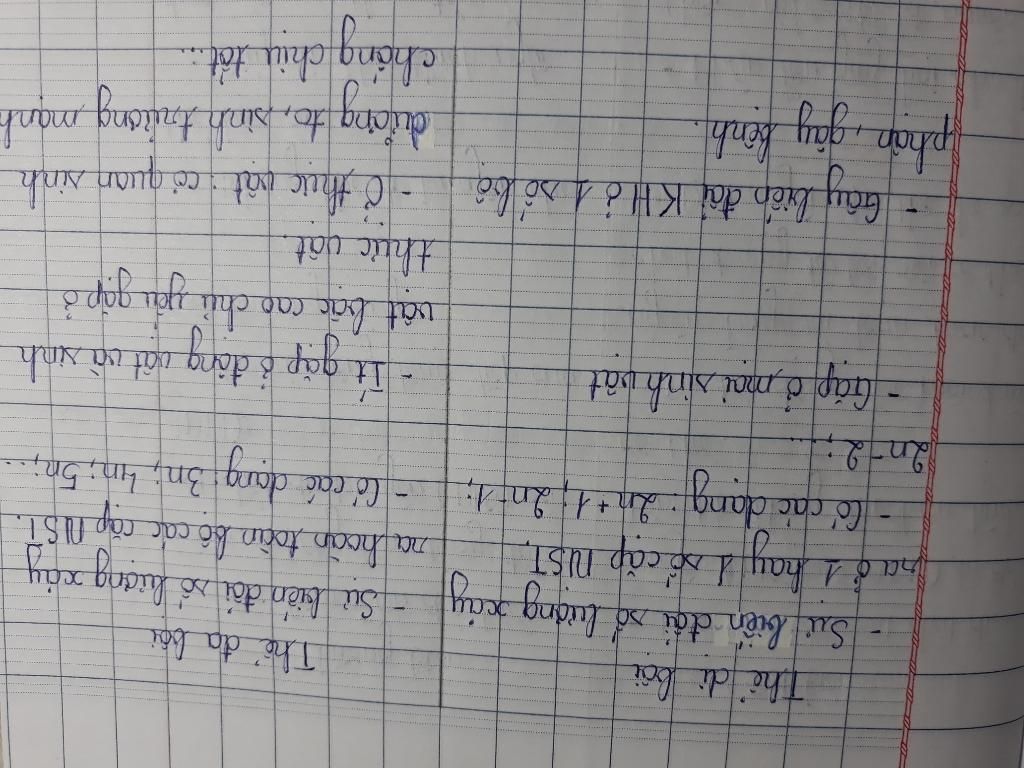 Thể dị bội
- Sự biến đổi số lượng xảy
ra ở 1 hay 1 số cặp NST.
- Có các dạng: 2n + 1; 2n - 1;
2n - 2; ...
- Gặp ở mọi sinh vật
- Gây biến đổi KH ở 1 số bộ
phận, gây bệnh.
Thể đa bội
- Sự biến đổi số lượng xảy
ra hoàn toàn bộ các cặp NST.
- Có các dạng: 3n; 4n; 5n; ...
- Ít gặp ở động vật và sinh
vật bậc cao chủ yếu gặp ở
thực vật.
- Ở thực vật: cơ quan sinh
dưỡng to, sinh trưởng mạnh
chống chịu tốt...